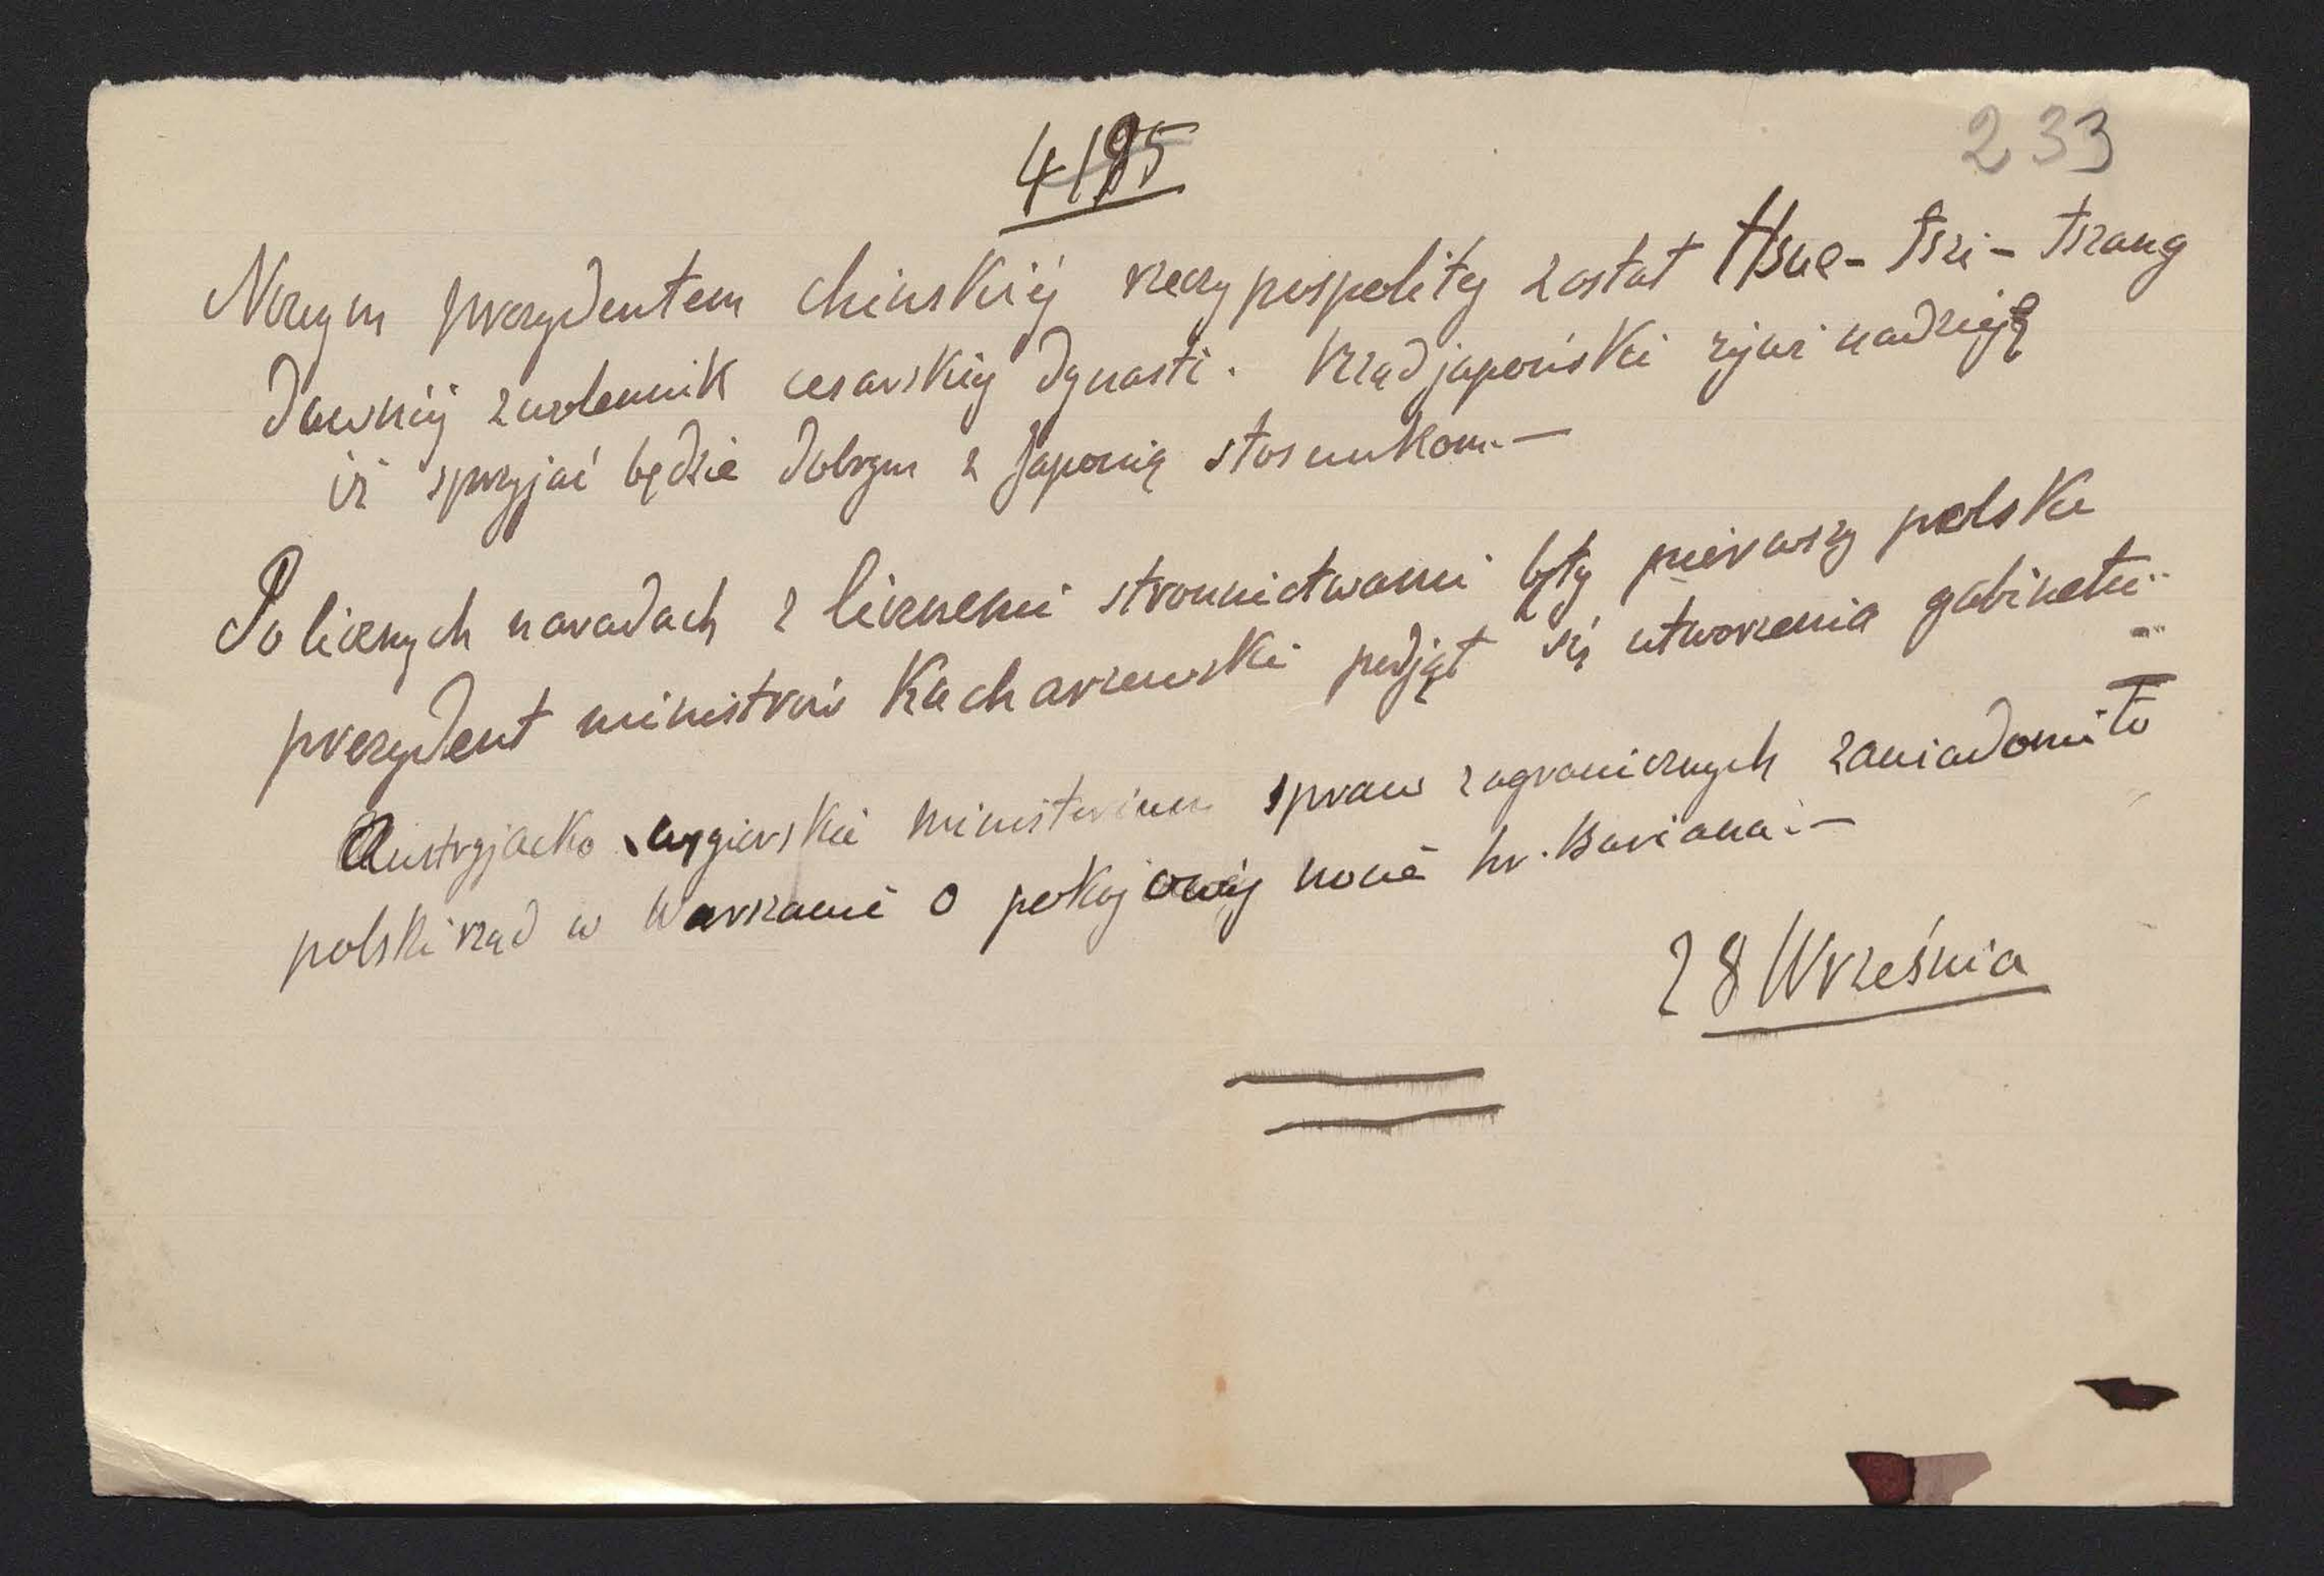 233
Nowym prezydentem chińskiéj rzeczypospolitej został Hsue-Tszi-Tszang
dawniéj zwolennik cesarskiéj dynasti. Rząd japoński żywi nadzieję
iż sprzyjać będzie dobrym z Japonią stosunkom.—
Po licznych naradach z licznemi stronnictwami były pierwszy polski
prezydent ministrów Kucharzewski podjął się utworzenia gabinetu
Austryjacko węgierskie ministerium spraw zagranicznych zawiadomiło
polski rząd w Warszawie o pokojowéj nocie hr. Buriana.—
28 Września